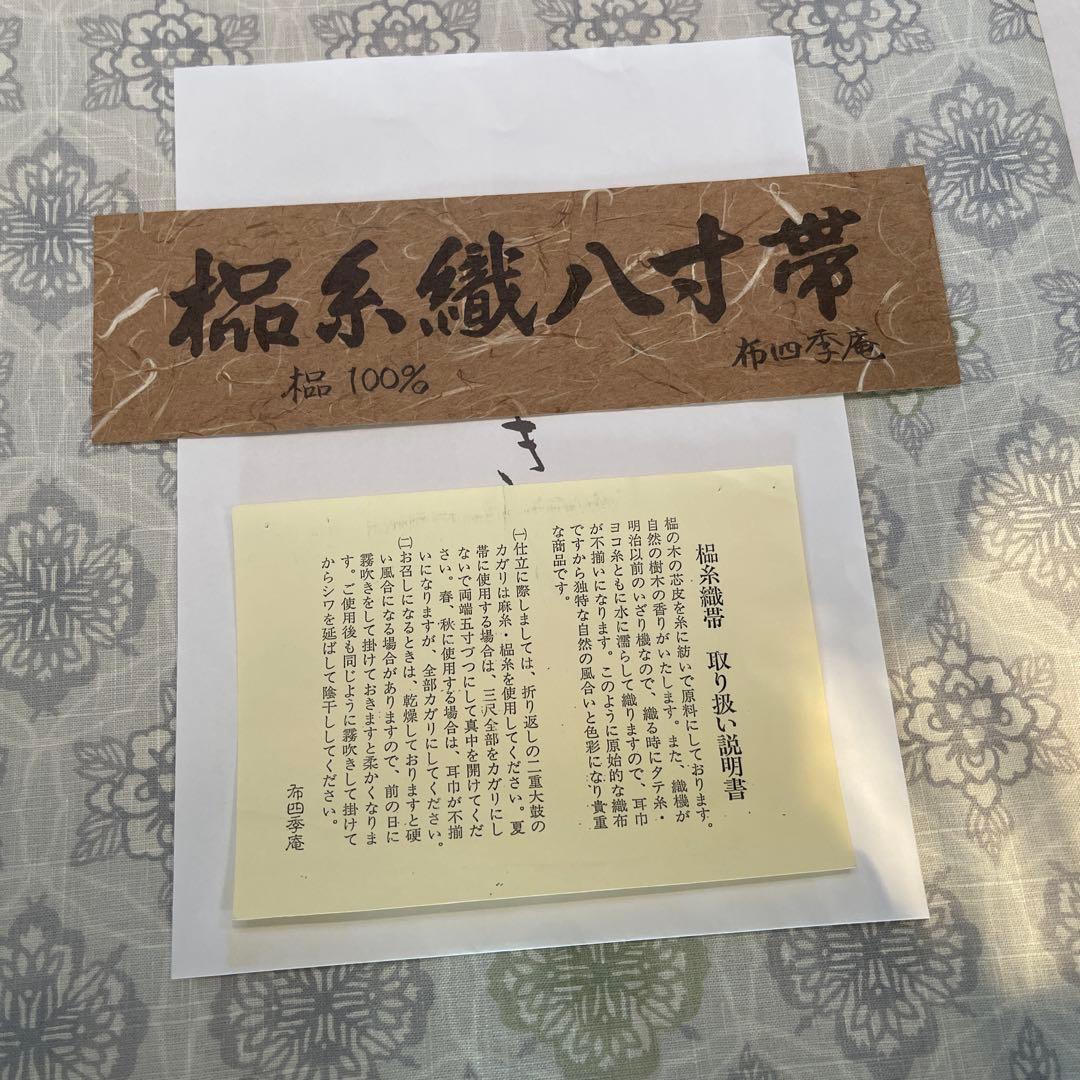 榀糸織八寸帯
榀 100%
布四季庵
き
榀糸織帯 取り扱い説明書
榀の木の芯皮を糸に紡いで原料にしております。
自然の樹木の香りがいたします。また、織機が
明治以前のいざり機なので、織る時にタテ糸・
ヨコ糸ともに水に濡らして織りますので、耳巾
が不揃いになります。このように原始的な織布
ですから独特な自然の風合いと色彩になり貴重
な商品です。
㈠仕立に際しましては、折り返しの二重大鼓の
カガリは麻糸・榀糸を使用してください。夏
帯に使用する場合は、三尺全部をカガリにし
ないで両端五寸づつにして真中を開けてくだ
さい。春、秋に使用する場合は、耳巾が不揃
いになりますが、全部カガリにしてください。
㈡お召しになるときは、乾燥しておりますと硬
い風合になる場合がありますので、前の日に
霧吹きをして掛けておきますと柔かくなりま
す。ご使用後も同じように霧吹きして掛けて
からシワを延ばして陰干ししてください。
布四季庵